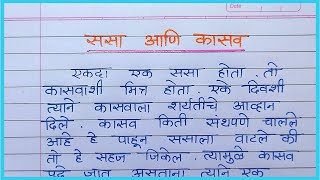 ससा आणि कासव
एकदा एक ससा होता. तो
कासवाशी मित्र होता. एके दिवशी
त्याने कासवाला शर्यतीचे आव्हान
दिले. कासव किती संथपणे चालले
आहे हे पाहून ससाला वाटले की
तो हे सहज जिंकेल. त्यामुळे कासव
पुढे जात असताना त्याने एक